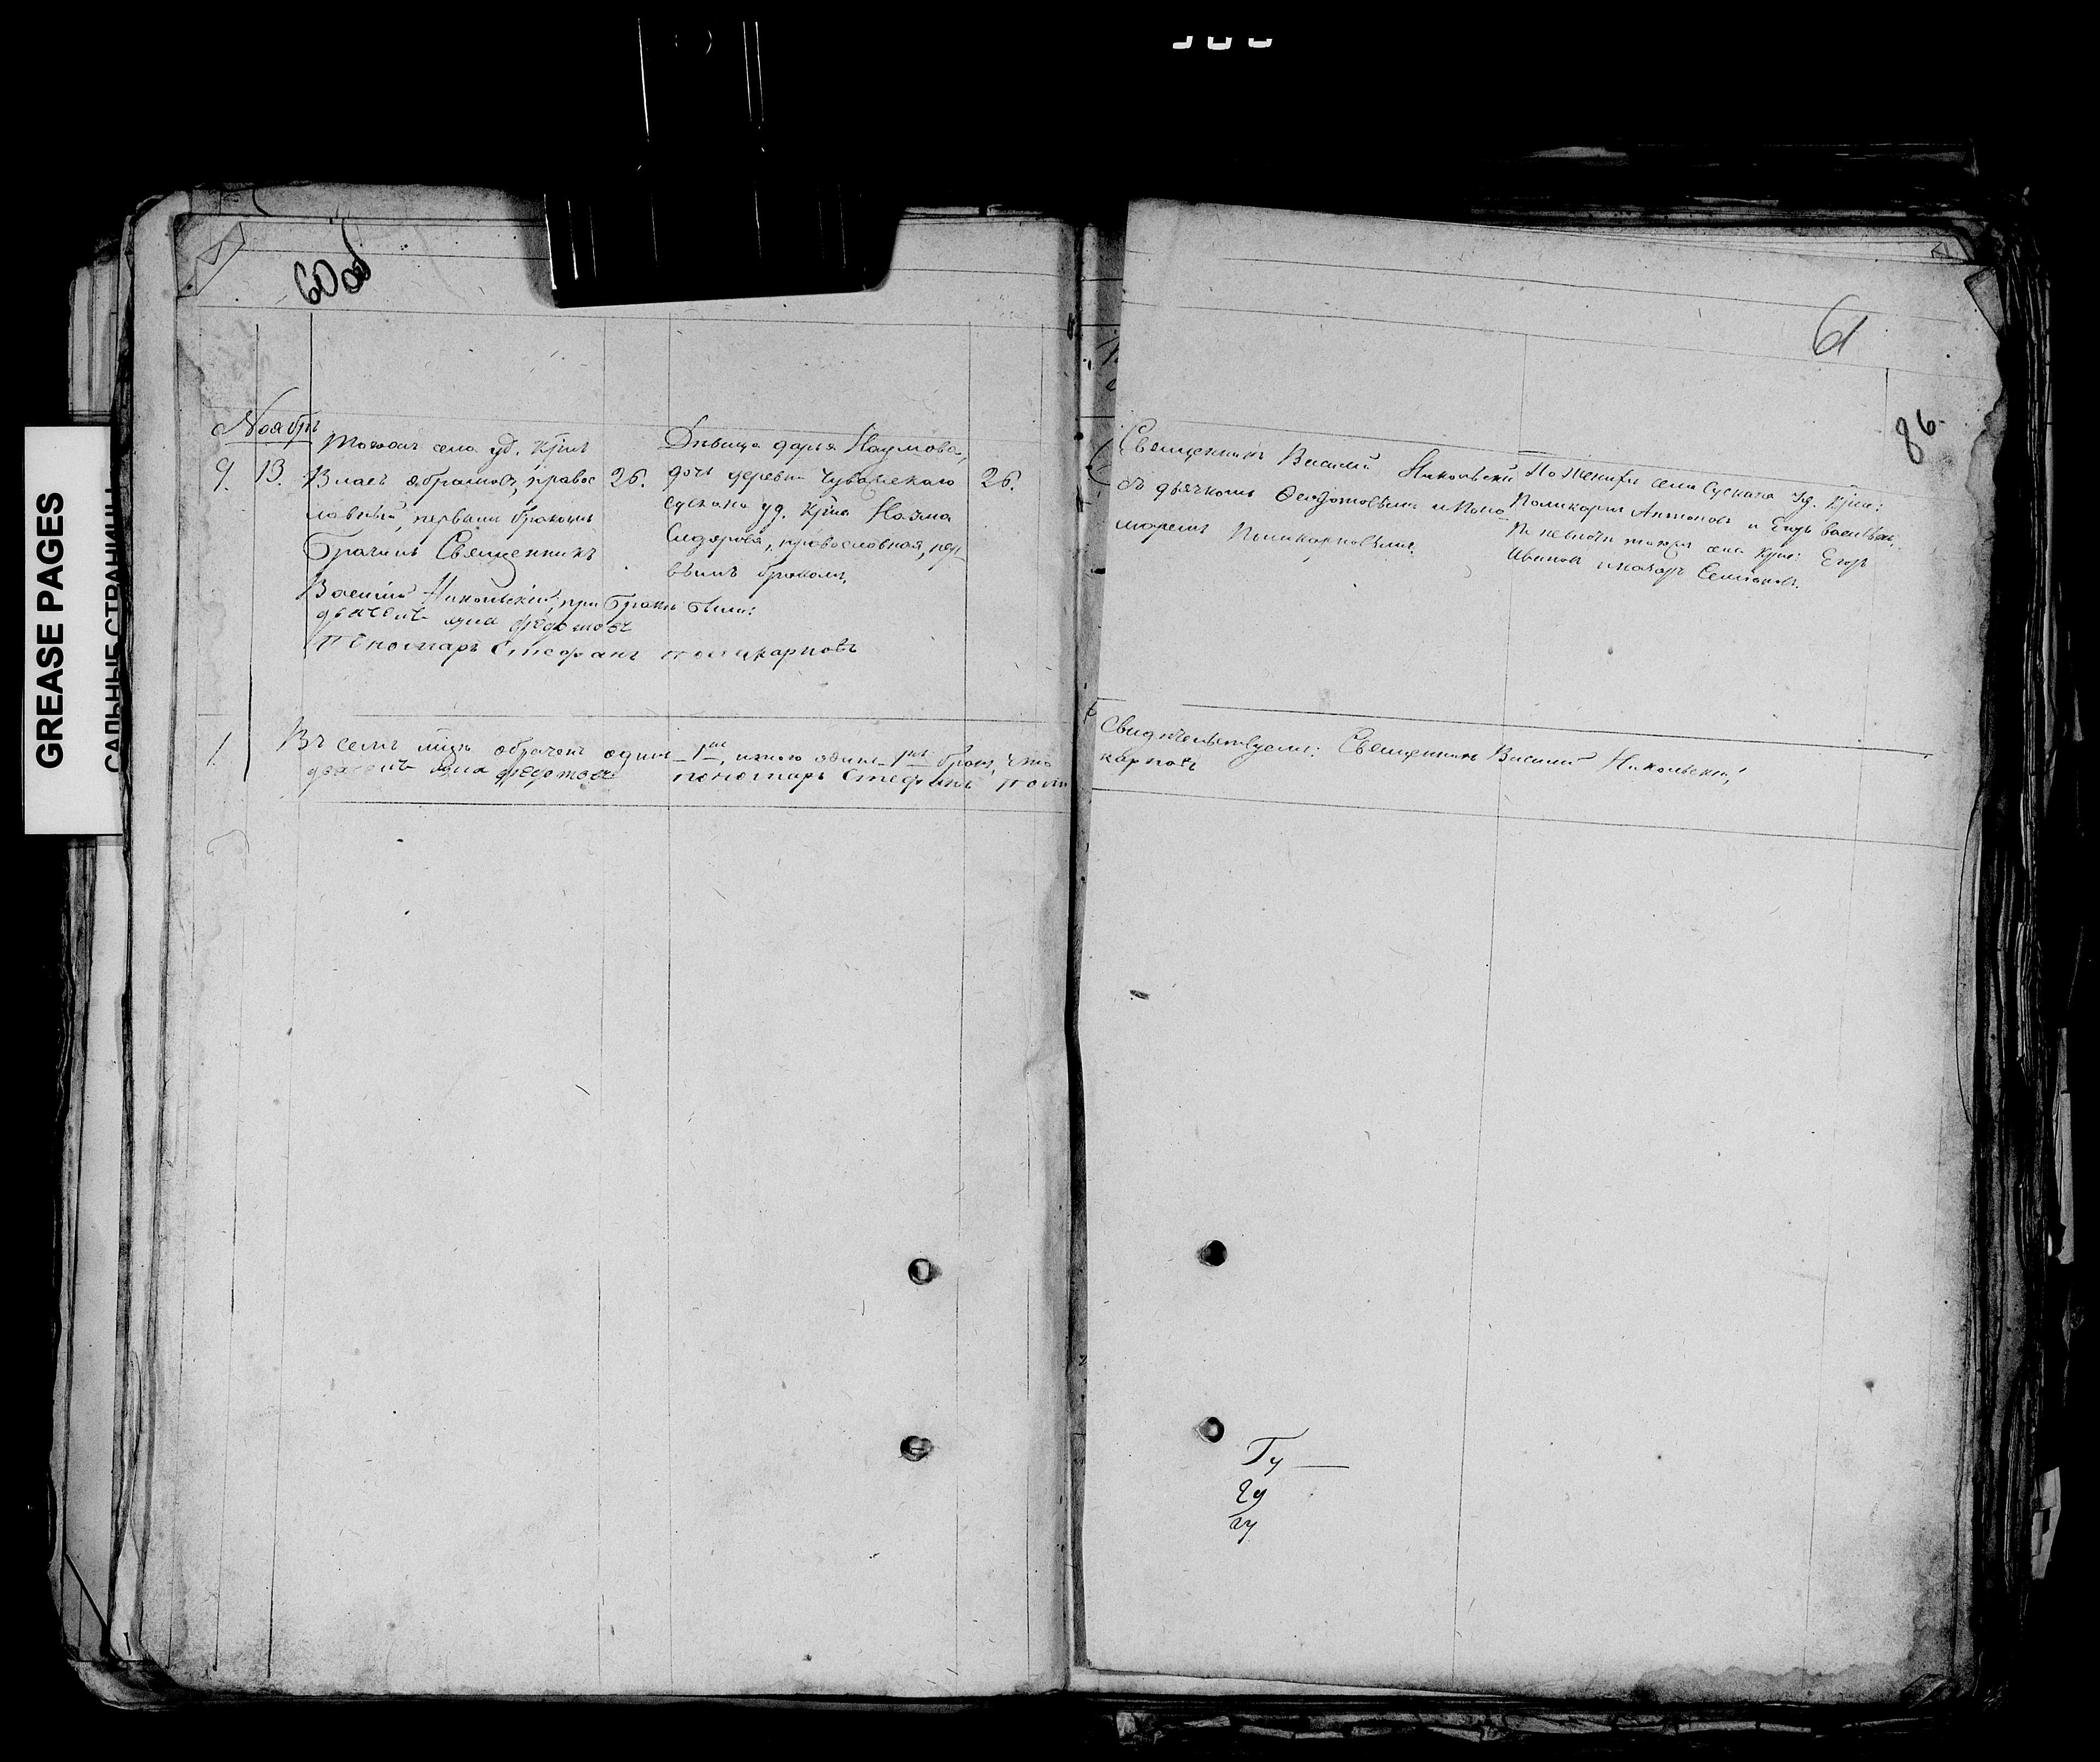 GREASE PAGES
САЛЬНЫЕ СТРАНИЦЫ
60 об
Ноябрь
9. 13. Тогожъ села уд. крнъ
Власъ Абрамовъ, правос
лавный, первымъ бракомъ
Брачилъ Священникъ
Василий Никольский, при бракѣ были:
Пономарь Стефанъ поликарповъ
26.
Дѣвица дарья Наумова,
дочь деревни Чувашскаго
сускана уд. крна Наума
Сидорова, православная, пер
вымъ бракомъ.
26.
1. Въ семъ мцѣ обрачен один 1, итого один 1 бракъ, что
пономарь Стефанъ поли
61
86.
Священникъ Василий Никольский
съ дьячкомъ Федотовымъ и Поно
маремъ Поликарповымъ.
По Женихѣ села Сускана уд. крне:
Поликарпъ Антоновъ и Егоръ Васильев.
По невѣсти тогожъ села крне: Егоръ
Ивановъ и Назаръ Семеновъ.
Свидѣтельствуемъ: Священникъ Василий Никольский,
карповъ